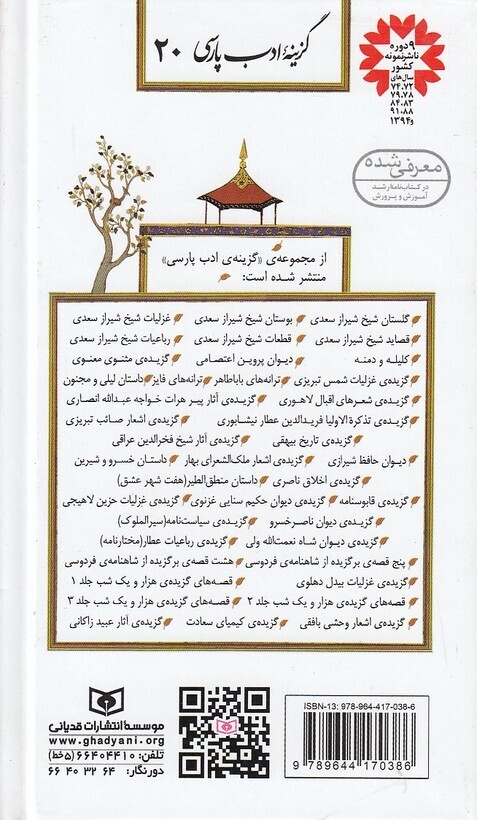 گزینهٔ ادب پارسی ۲۰
۹ دوره
ناشر نمونه
کشور
سال‌های
۷۴،۷۲
۷۹،۷۸
۸۴،۸۳
۹۱،۸۸
و۱۳۹۴
معرفی شده
در کتاب‌نامهٔ رشد
آموزش و پرورش
از مجموعه‌ی «گزینه‌ی ادب پارسی»
منتشر شده است:
گلستان شیخ شیراز سعدی بوستان شیخ شیراز سعدی غزلیات شیخ شیراز سعدی
قصاید شیخ شیراز سعدی قطعات شیخ شیراز سعدی رباعیات شیخ شیراز سعدی
کلیله و دمنه دیوان پروین اعتصامی گزیده‌ی مثنوی معنوی
گزیده‌ی غزلیات شمس تبریزی ترانه‌های باباطاهر ترانه‌های فایز داستان لیلی و مجنون
گزیده‌ی شعرهای اقبال لاهوری گزیده‌ی آثار پیر هرات خواجه عبدالله انصاری
گزیده‌ی تذکرة الاولیا فریدالدین عطار نیشابوری گزیده‌ی اشعار صائب تبریزی
گزیده‌ی تاریخ بیهقی گزیده‌ی آثار شیخ فخرالدین عراقی
دیوان حافظ شیرازی گزیده‌ی اشعار ملک‌الشعرای بهار داستان خسرو و شیرین
گزیده‌ی اخلاق ناصری داستان منطق‌الطیر(هفت شهر عشق)
گزیده‌ی قابوسنامه گزیده‌ی دیوان حکیم سنایی غزنوی گزیده‌ی غزلیات حزین لاهیجی
گزیده‌ی دیوان ناصرخسرو گزیده‌ی سیاست‌نامه(سیرالملوک)
گزیده‌ی دیوان شاه نعمت‌الله ولی گزیده‌ی رباعیات عطار(مختارنامه)
پنج قصه‌ی برگزیده از شاهنامه‌ی فردوسی هشت قصه‌ی برگزیده از شاهنامه‌ی فردوسی
گزیده‌ی غزلیات بیدل دهلوی قصه‌های گزیده‌ی هزار و یک شب جلد ۱
قصه‌های گزیده‌ی هزار و یک شب جلد ۲ قصه‌های گزیده‌ی هزار و یک شب جلد ۳
گزیده‌ی اشعار وحشی بافقی گزیده‌ی کیمیای سعادت گزیده‌ی آثار عبید زاکانی
موسسهٔ انتشارات قدیانی
www.ghadyani.org
تلفن: ۶۶۴۰۴۴۱۰ (۵خط)
دورنگار: ۶۶ ۴۰ ۳۲ ۶۴
ISBN-13: 978-964-417-038-6
9 789644 170386